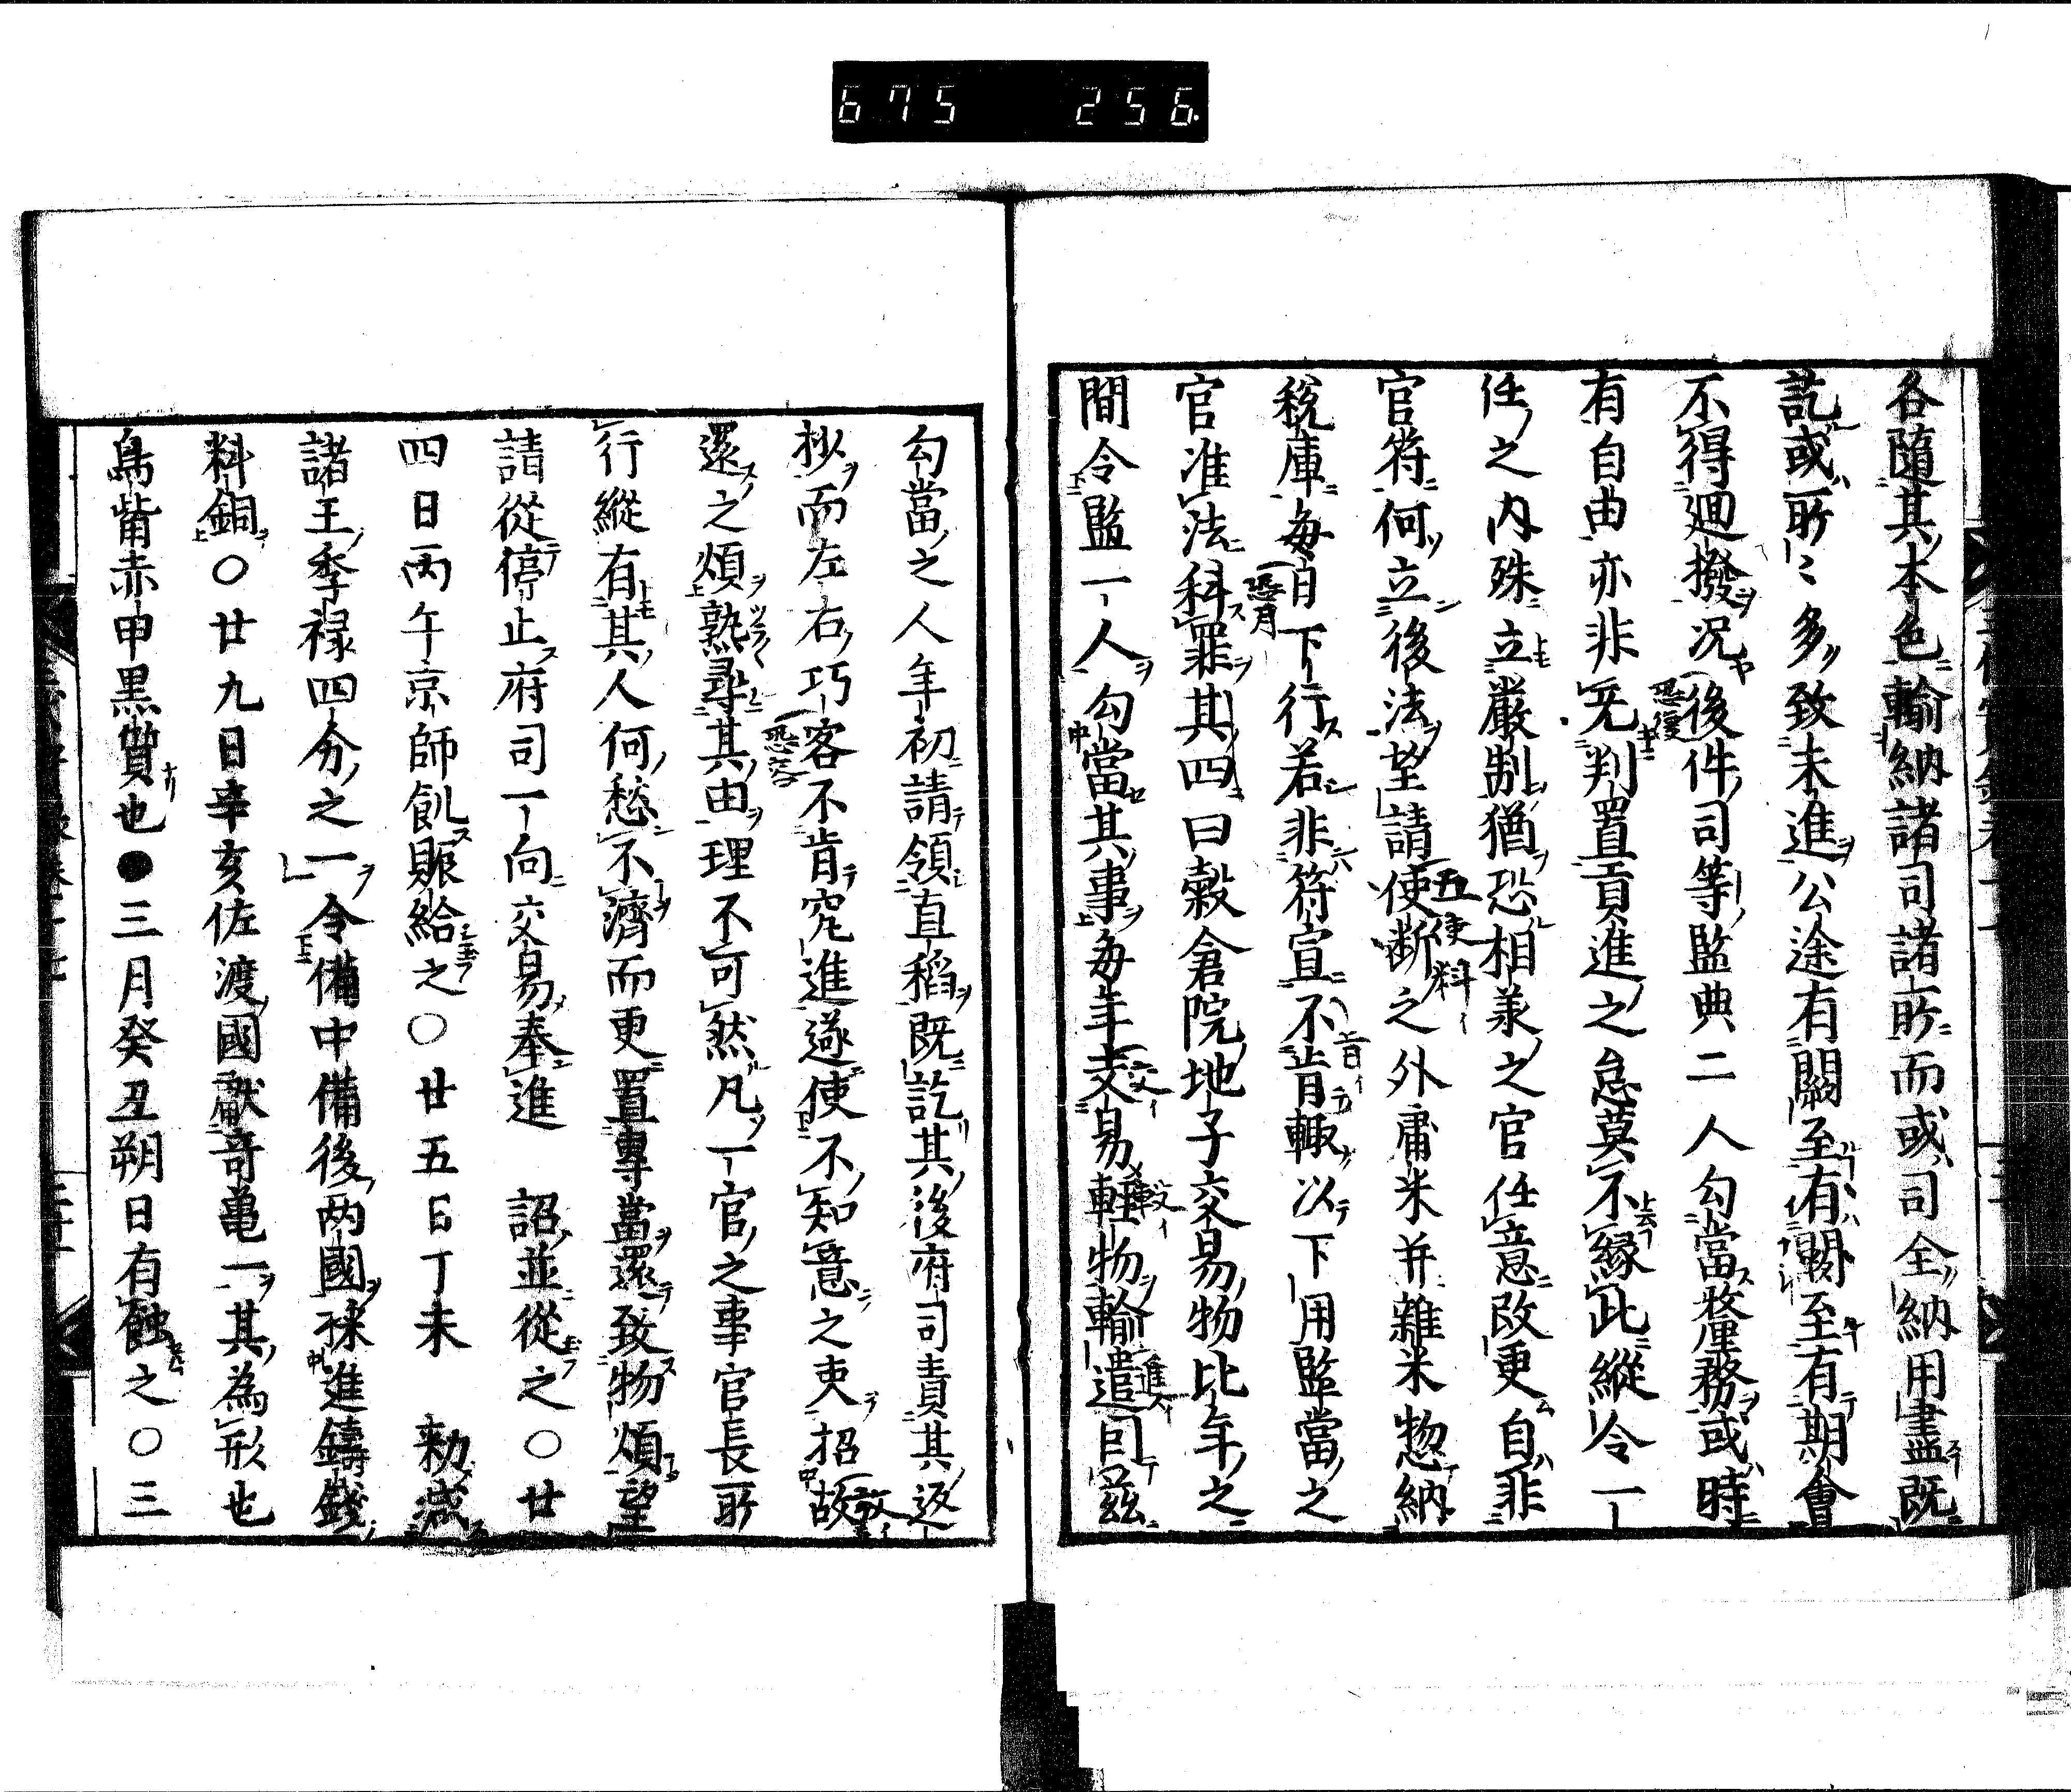 675 256
各隨其本色輸納諸司諸所而或司全納用盡既
訖或所〻多致未進公途有闕至有闕至有期會
不得廻撥况後件司等監典二人勾當釐務或時
恐從
有自由亦非无判置貢進之怠莫不縁此縱令一
任之内殊立嚴制猶恐相兼之官任意改更自非
官符何立後法望請使断之外庸米并雜米惣納
五使料イ
税庫毎月下行若非符宣不肯輙以下用監當之
恐月
官准法科罪其四曰穀倉院地子交易物比年之
間令監一人勾當其事毎年交易輕物輸遣囙兹
勾當之人年初請領直稻既訖其後府司責其返
抄而左右巧客不肯究進遂使不知意之吏招故
恐容
還之煩熟尋其由理不可然凡一官之事官長所
行縱有其人何愁不濟而更置專當還致物煩望
請從停止府司一向交易奉進 詔並從之〇廿
四日丙午京師飢賑給之〇廿五日丁未 勅减
諸王季禄四分之一令備中備後两國採進鑄錢
料銅〇廿九日辛亥佐渡國獻奇亀一其為形也
鳥觜赤甲黒質也●三月癸丑朔日有蝕之〇三